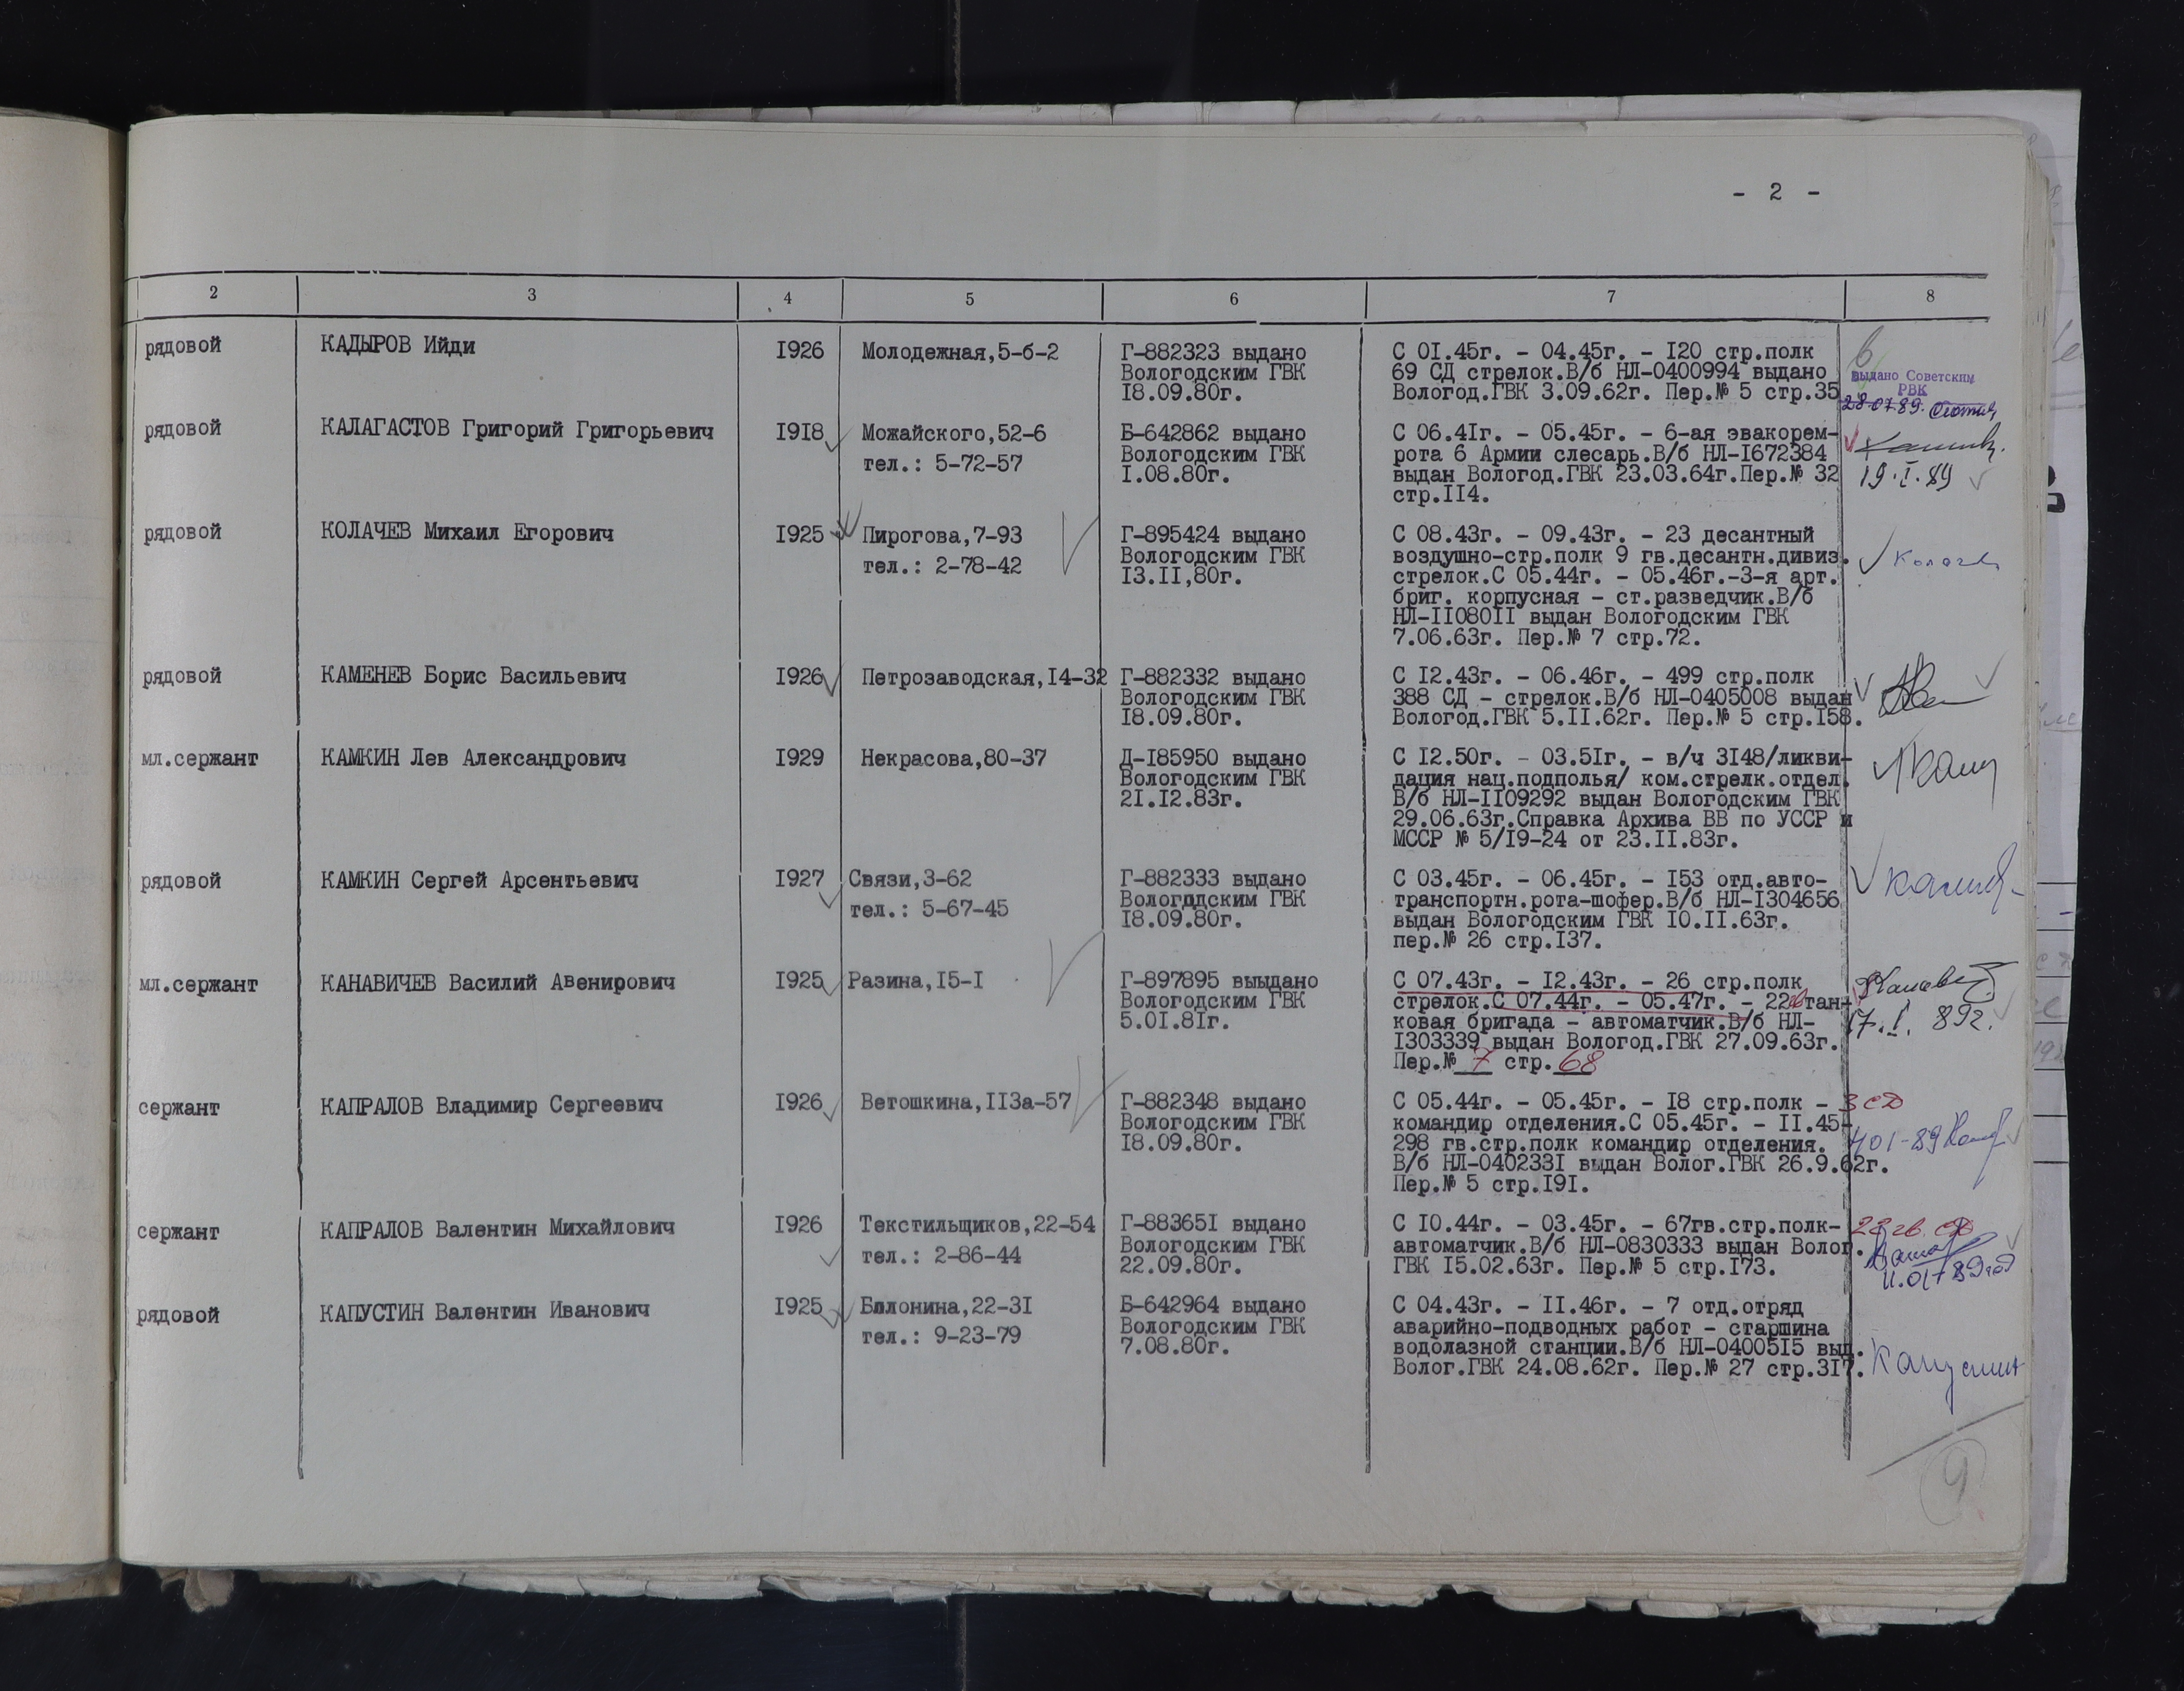 - 2 -
2 3 4 5 6 7 8
рядовой КАДЫРОВ Ийди 1926 Молодежная,5-б-2 Г-882323 выдано С 01.45г. - 04.45г. - 120 стр.полк
Вологодским ГВК 69 СД стрелок.В/б НЛ-0400994 выдано
18.09.80г. Вологод.ГВК 3.09.62г. Пер.№ 5 стр.35
выдано Советским
РВК
28.07.89.
рядовой КАЛАГАСТОВ Григорий Григорьевич 1918 Можайского,52-6 Б-642862 выдано С 06.41г. - 05.45г. - 6-ая эвакорем-
тел.: 5-72-57 Вологодским ГВК рота 6 Армии слесарь.В/б НЛ-1672384
1.08.80г. выдан Вологод.ГВК 23.03.64г.Пер.№ 32 19.I.89
стр.114.
рядовой КОЛАЧЕВ Михаил Егорович 1925 Пирогова,7-93 Г-895424 выдано С 08.43г. - 09.43г. - 23 десантный
тел.: 2-78-42 Вологодским ГВК воздушно-стр.полк 9 гв.десантн.дивиз.
13.11,80г. стрелок.С 05.44г. - 05.46г.-3-я арт.
бриг. корпусная - ст.разведчик.В/б
НЛ-1108011 выдан Вологодским ГВК
7.06.63г. Пер.№ 7 стр.72.
рядовой КАМЕНЕВ Борис Васильевич 1926 Петрозаводская,14-32 Г-882332 выдано С 12.43г. - 06.46г. - 499 стр.полк
Вологодским ГВК 388 СД - стрелок.В/б НЛ-0405008 выдан
18.09.80г. Вологод.ГВК 5.11.62г. Пер.№ 5 стр.158.
мл.сержант КАМКИН Лев Александрович 1929 Некрасова,80-37 Д-185950 выдано С 12.50г. - 03.51г. - в/ч 3148/ликви-
Вологодским ГВК дация нац.подполья/ ком.стрелк.отдел.
21.12.83г. В/б НЛ-1109292 выдан Вологодским ГВК
29.06.63г.Справка Архива ВВ по УССР и
МССР № 5/19-24 от 23.11.83г.
рядовой КАМКИН Сергей Арсентьевич 1927 Связи,3-62 Г-882333 выдано С 03.45г. - 06.45г. - 153 отд.авто-
тел.: 5-67-45 Вологодским ГВК транспортн.рота-шофер.В/б НЛ-1304656
18.09.80г. выдан Вологодским ГВК 10.11.63г.
пер.№ 26 стр.137.
мл.сержант КАНАВИЧЕВ Василий Авенирович 1925 Разина,15-1 Г-897895 выыдано С 07.43г. - 12.43г. - 26 стр.полк
Вологодским ГВК стрелок.С 07.44г. - 05.47г. - 22 тан-
5.01.81г. ковая бригада - автоматчик.В/б НЛ- 17.I. 89г.
1303339 выдан Вологод.ГВК 27.09.63г.
Пер.№ 7 стр. 68
сержант КАПРАЛОВ Владимир Сергеевич 1926 Ветошкина,113а-57 Г-882348 выдано С 05.44г. - 05.45г. - 18 стр.полк - 3 сд
Вологодским ГВК командир отделения.С 05.45г. - 11.45-
18.09.80г. 298 гв.стр.полк командир отделения.
В/б НЛ-0402331 выдан Волог.ГВК 26.9.62г.
Пер.№ 5 стр.191.
сержант КАПРАЛОВ Валентин Михайлович 1926 Текстильщиков,22-54 Г-883651 выдано С 10.44г. - 03.45г. - 67гв.стр.полк- 22 гв. сд
тел.: 2-86-44 Вологодским ГВК автоматчик.В/б НЛ-0830333 выдан Волог.
22.09.80г. ГВК 15.02.63г. Пер.№ 5 стр.173.
рядовой КАПУСТИН Валентин Иванович 1925 Блонина,22-31 Б-642964 выдано С 04.43г. - 11.46г. - 7 отд.отряд
тел.: 9-23-79 Вологодским ГВК аварийно-подводных работ - старшина
7.08.80г. водолазной станции.В/б НЛ-0400515 выд.
Волог.ГВК 24.08.62г. Пер.№ 27 стр.317. Капустин
9